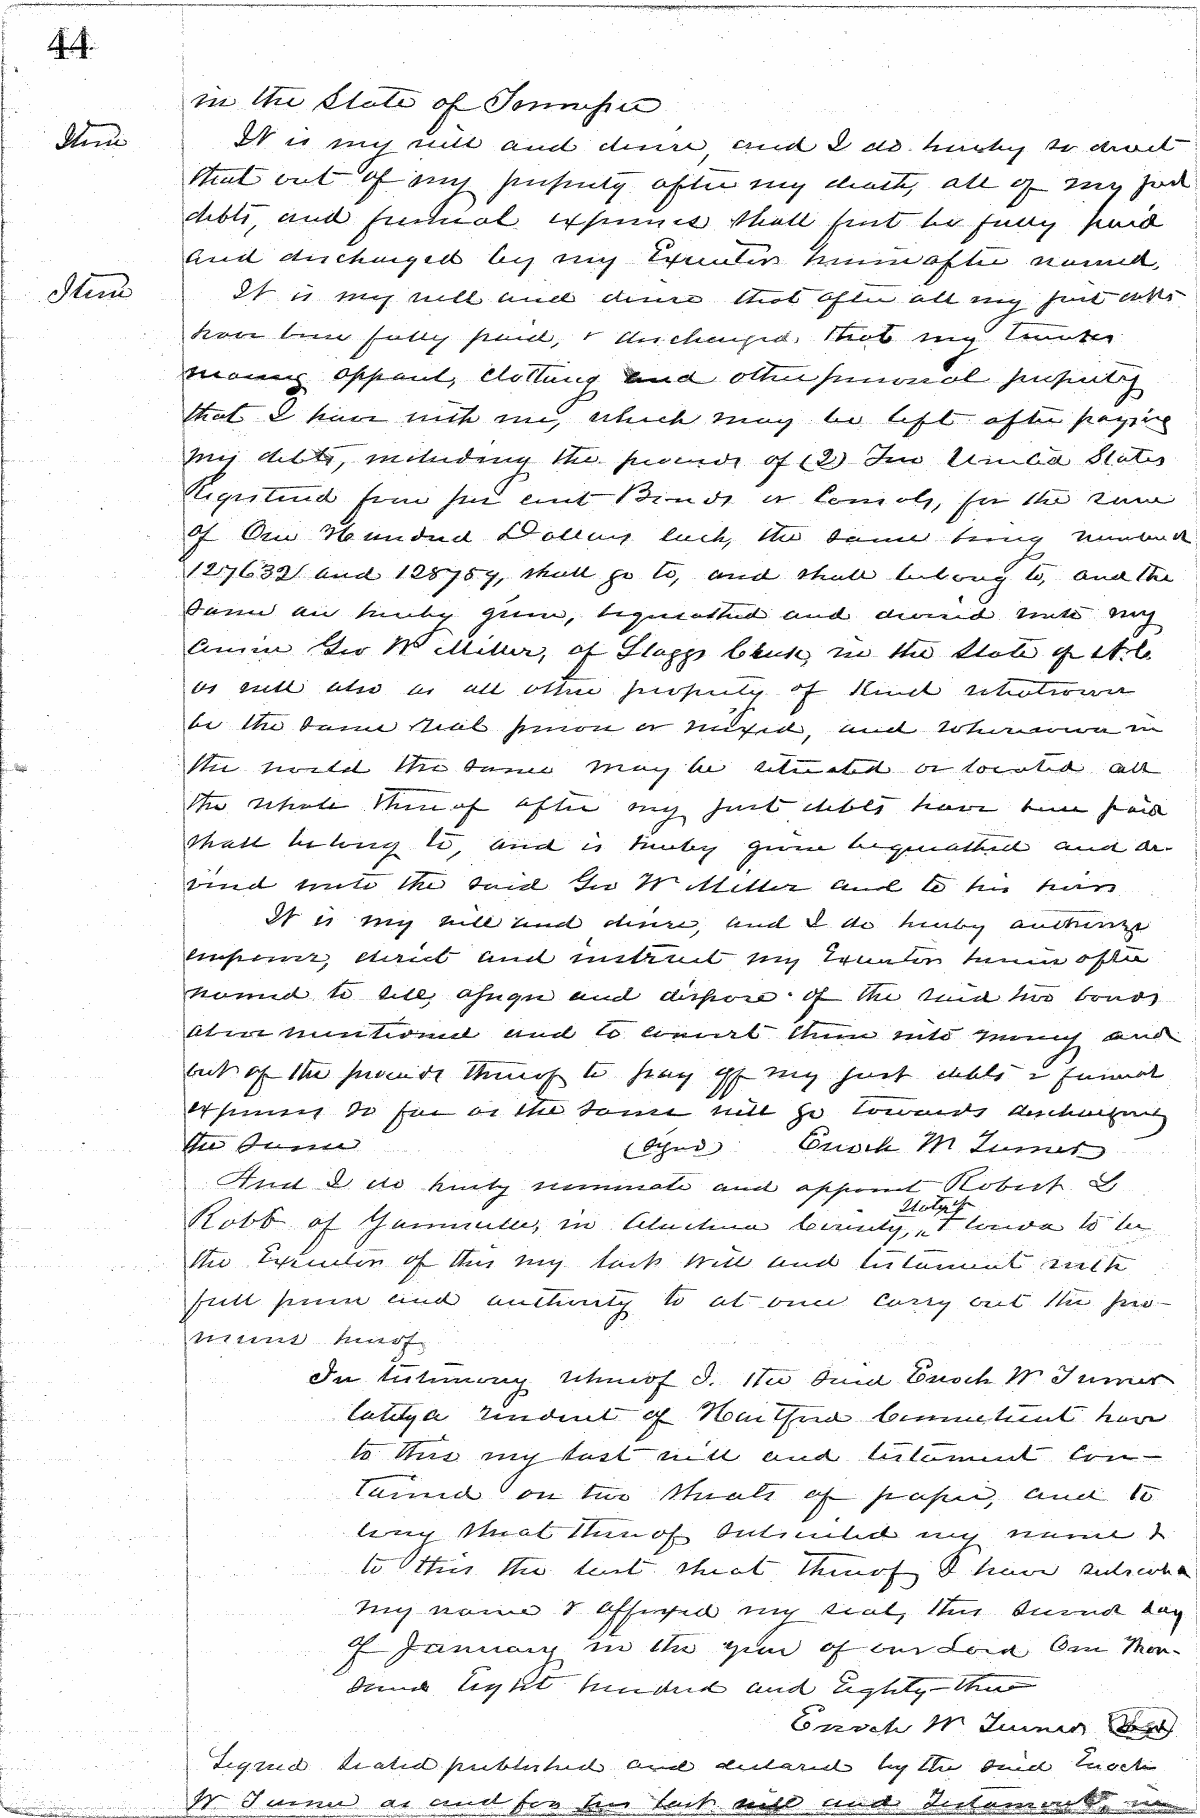 44.
in the State of Tennessee
Item It is my will and desire, and I do hereby so direct
that out of my property after my death, all of my just
debts, and funeral expenses shall first be fully paid
and discharged by my Executor hereinafter named,
Item It is my will and desire that after all my just debts
have been fully paid, & discharged, that my trunks
money apparel, clothing and other personal property
that I have with me, which may be left after paying
my debts, including the proceeds of (2) Two United States
Registered four per cent Bonds or Consols, for the sum
of One Hundred Dollars each, the same being numbered
127632 and 128759, shall go to, and shall belong to, and the
same are hereby given, bequeathed and devised unto my
Cousin Geo W Miller, of Flaggs Creek, in the State of
as well also as all other property of Kind whatsoever
be the same real person or mixed, and wheresoever in
the world the same may be situated or located all
the whole thereof after my just debts have been paid
shall belong to, and is hereby given bequeathed and de-
vised unto the said Geo W Miller and to his heirs
It is my will and desire, and I do hereby authorize
empower, direct and instruct my Executor herein after
named to sell, assign and dispose of the said two bonds
above mentioned and to convert them into money and
out of the proceeds thereof to pay off my just debts & funeral
expenses so far as the same will go towards discharging
the same (Signed) Enoch W Turner
And I do hereby nominate and appoint Robert L
Robb of Gainesville, in Alachua County, State of Florida to be
the Executor of this my last will and testament with
full power and authority to at once carry out the pro-
visions hereof
In testimony whereof I. the said Enoch W Turner
lately a resident of Hartford Connecticut have
to this my last will and testament con-
tained on two sheats of paper, and to
every sheat thereof subscribed my name &
to this the last sheat thereof I have subscribed
my name & affixed my seal, this Second day
of January in the year of our Lord One Thou-
sand Eight hundred and Eighty-three
Enoch W Turner Seal
Signed Sealed published and declared by the said Enoch
W Turner as and for his last will and Testament, in